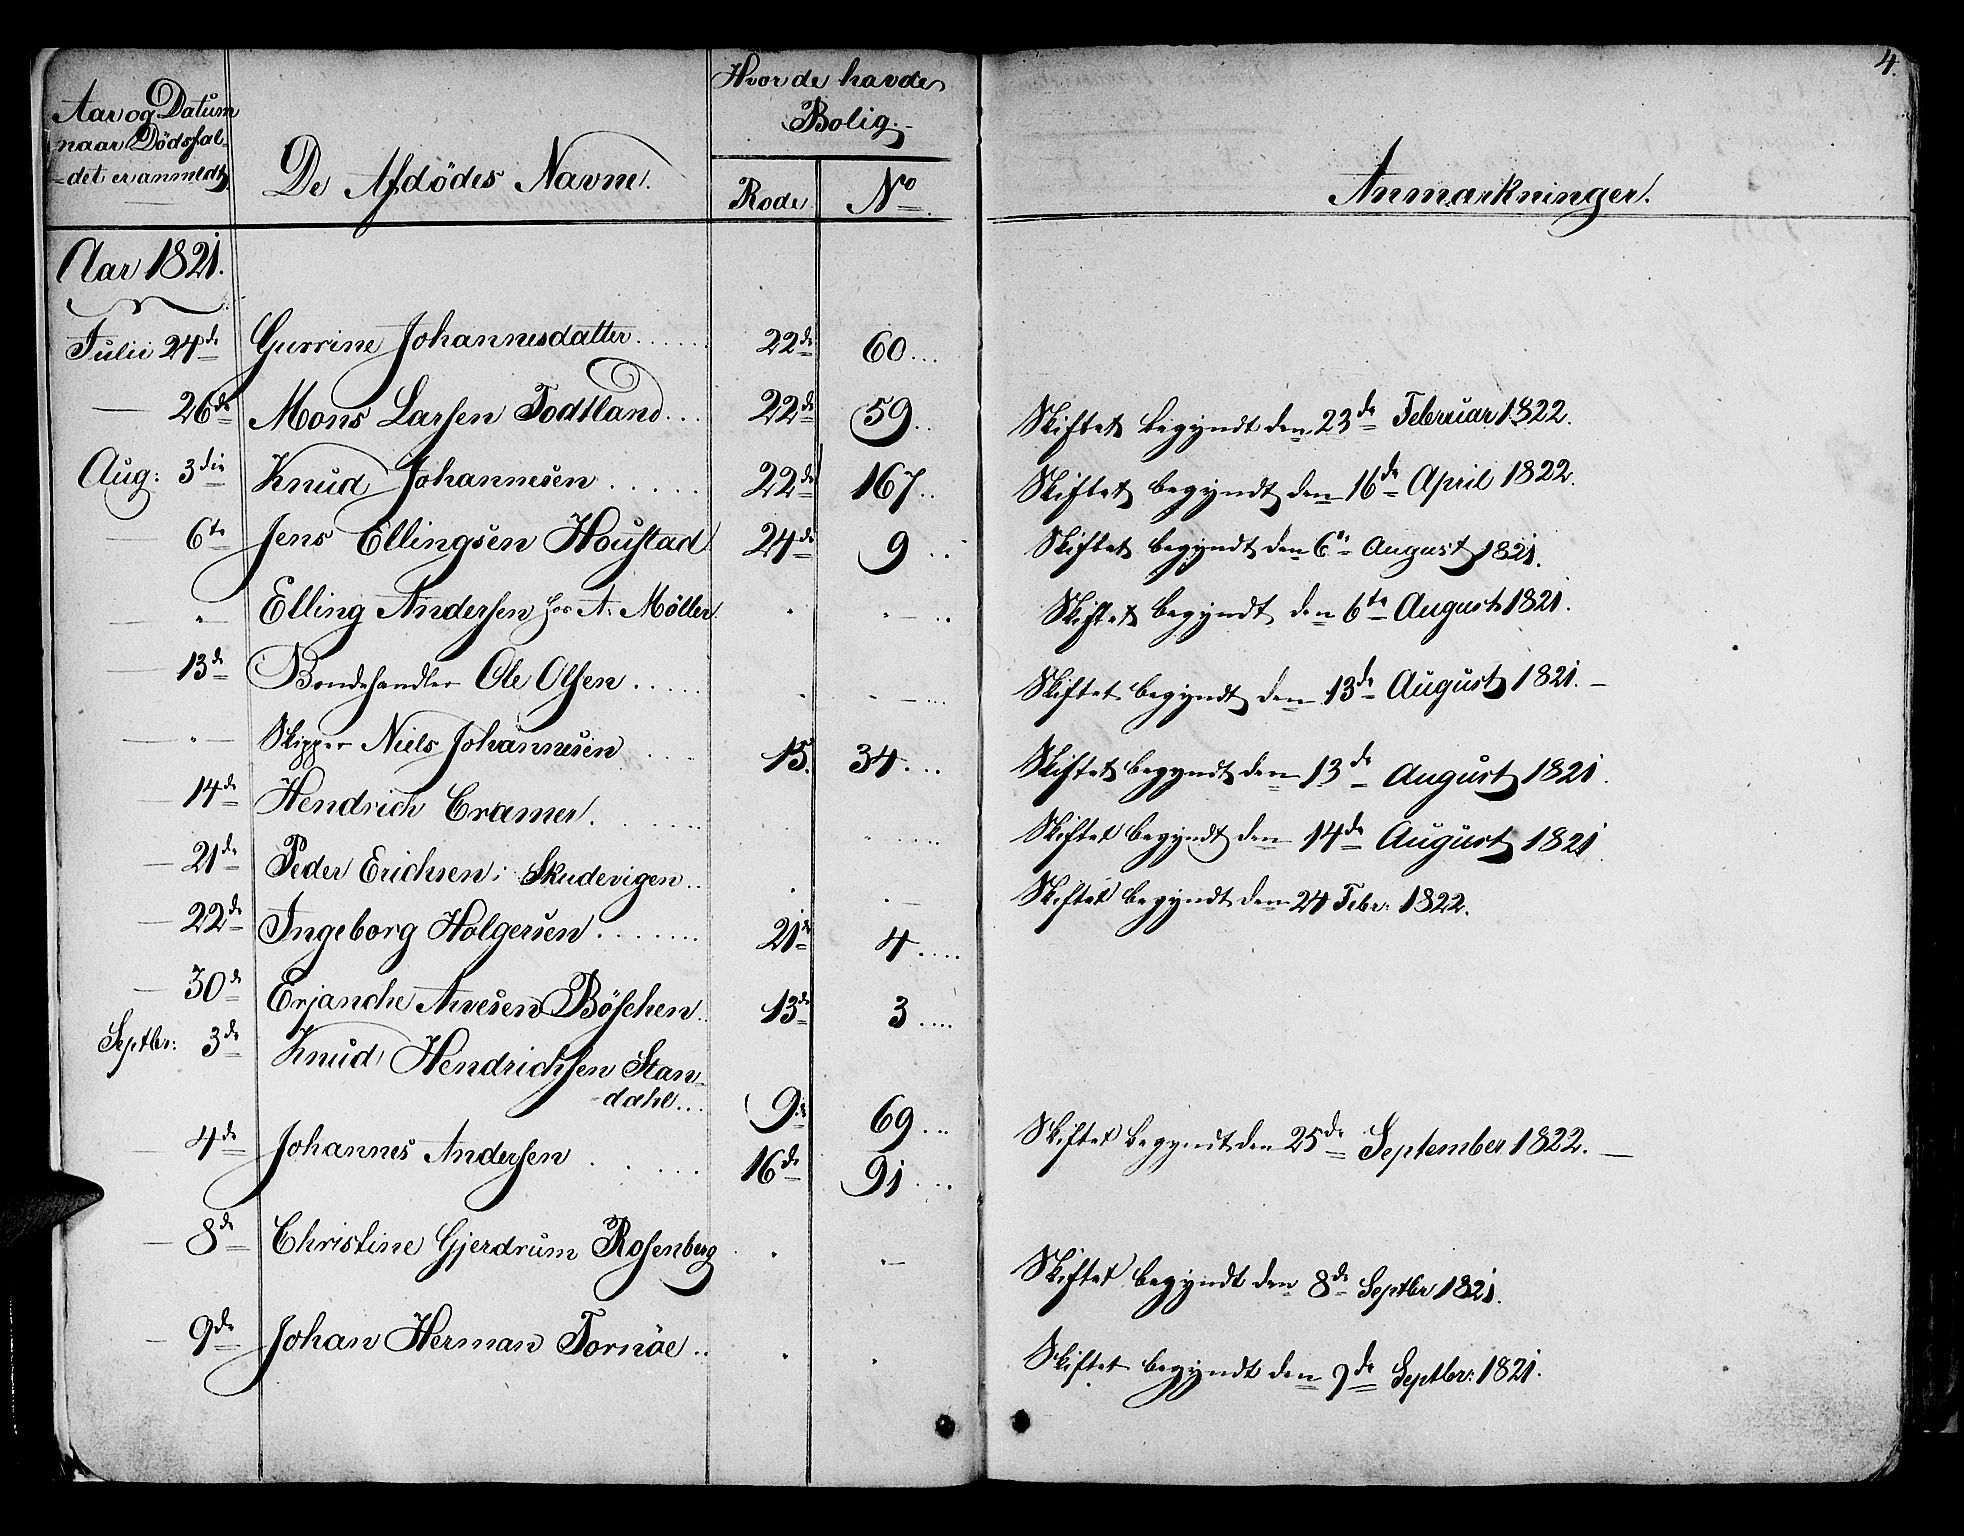 4.
Aar og Datum
naar Dödsfal-
det er anmeldt
De Afdödes Navne.
Hvor de havde
Bolig.
Rode
No
Anmærkninger.
Aar 1821.
Julii 24de Gurrine Johannesdatter...... 22de 60...
— 26de Mons Larsen Todtland... 22de 59.. Skiftet begyndt den 23de Februar 1822.
Aug: 3die Knud Johannesen..... 22de 167.. Skiftet begyndt den 16de April 1822.
— 6te Jens Ellingsen Houstad 24de 9 .. Skiftet begyndt den 6te August 1821.
— " — Elling Andersen hos A. Möller. " " — .. Skiftet begyndt den 6te August 1821.
— 13de Bondehandler Ole Olsen...... " " — ... Skiftet begyndt den 13de August 1821. —
— " — Skipper Niels Johannesen .... 15. 34... Skiftet begyndt den 13de August 1821.
— 14de Hendrich Cramer. ...... " " .... Skiftet begyndt den 14de August 1821.
— 21de Peder Erichsen i Skudevigen.. " " — Skiftet begyndt den 24 Febr: 1822.
— 22de Ingeborg Holgersen........ 21de 4....
— 30de Erjanche Arvesen Böschen.. 13de 3....
Septbr: 3de Knud Hendrichsen Stan-
dahl... 9de 69...
— 4de Johannes Andersen ...... 16de 91... Skiftet begyndt den 25de September 1822. —
— 8de Christine Gjerdrum Rosenberg " " — Skiftet begyndt den 8de Septbr 1821.
— 9de Johan Herman Tornöe.. " " Skiftet begyndt den 9de Septbr: 1821.